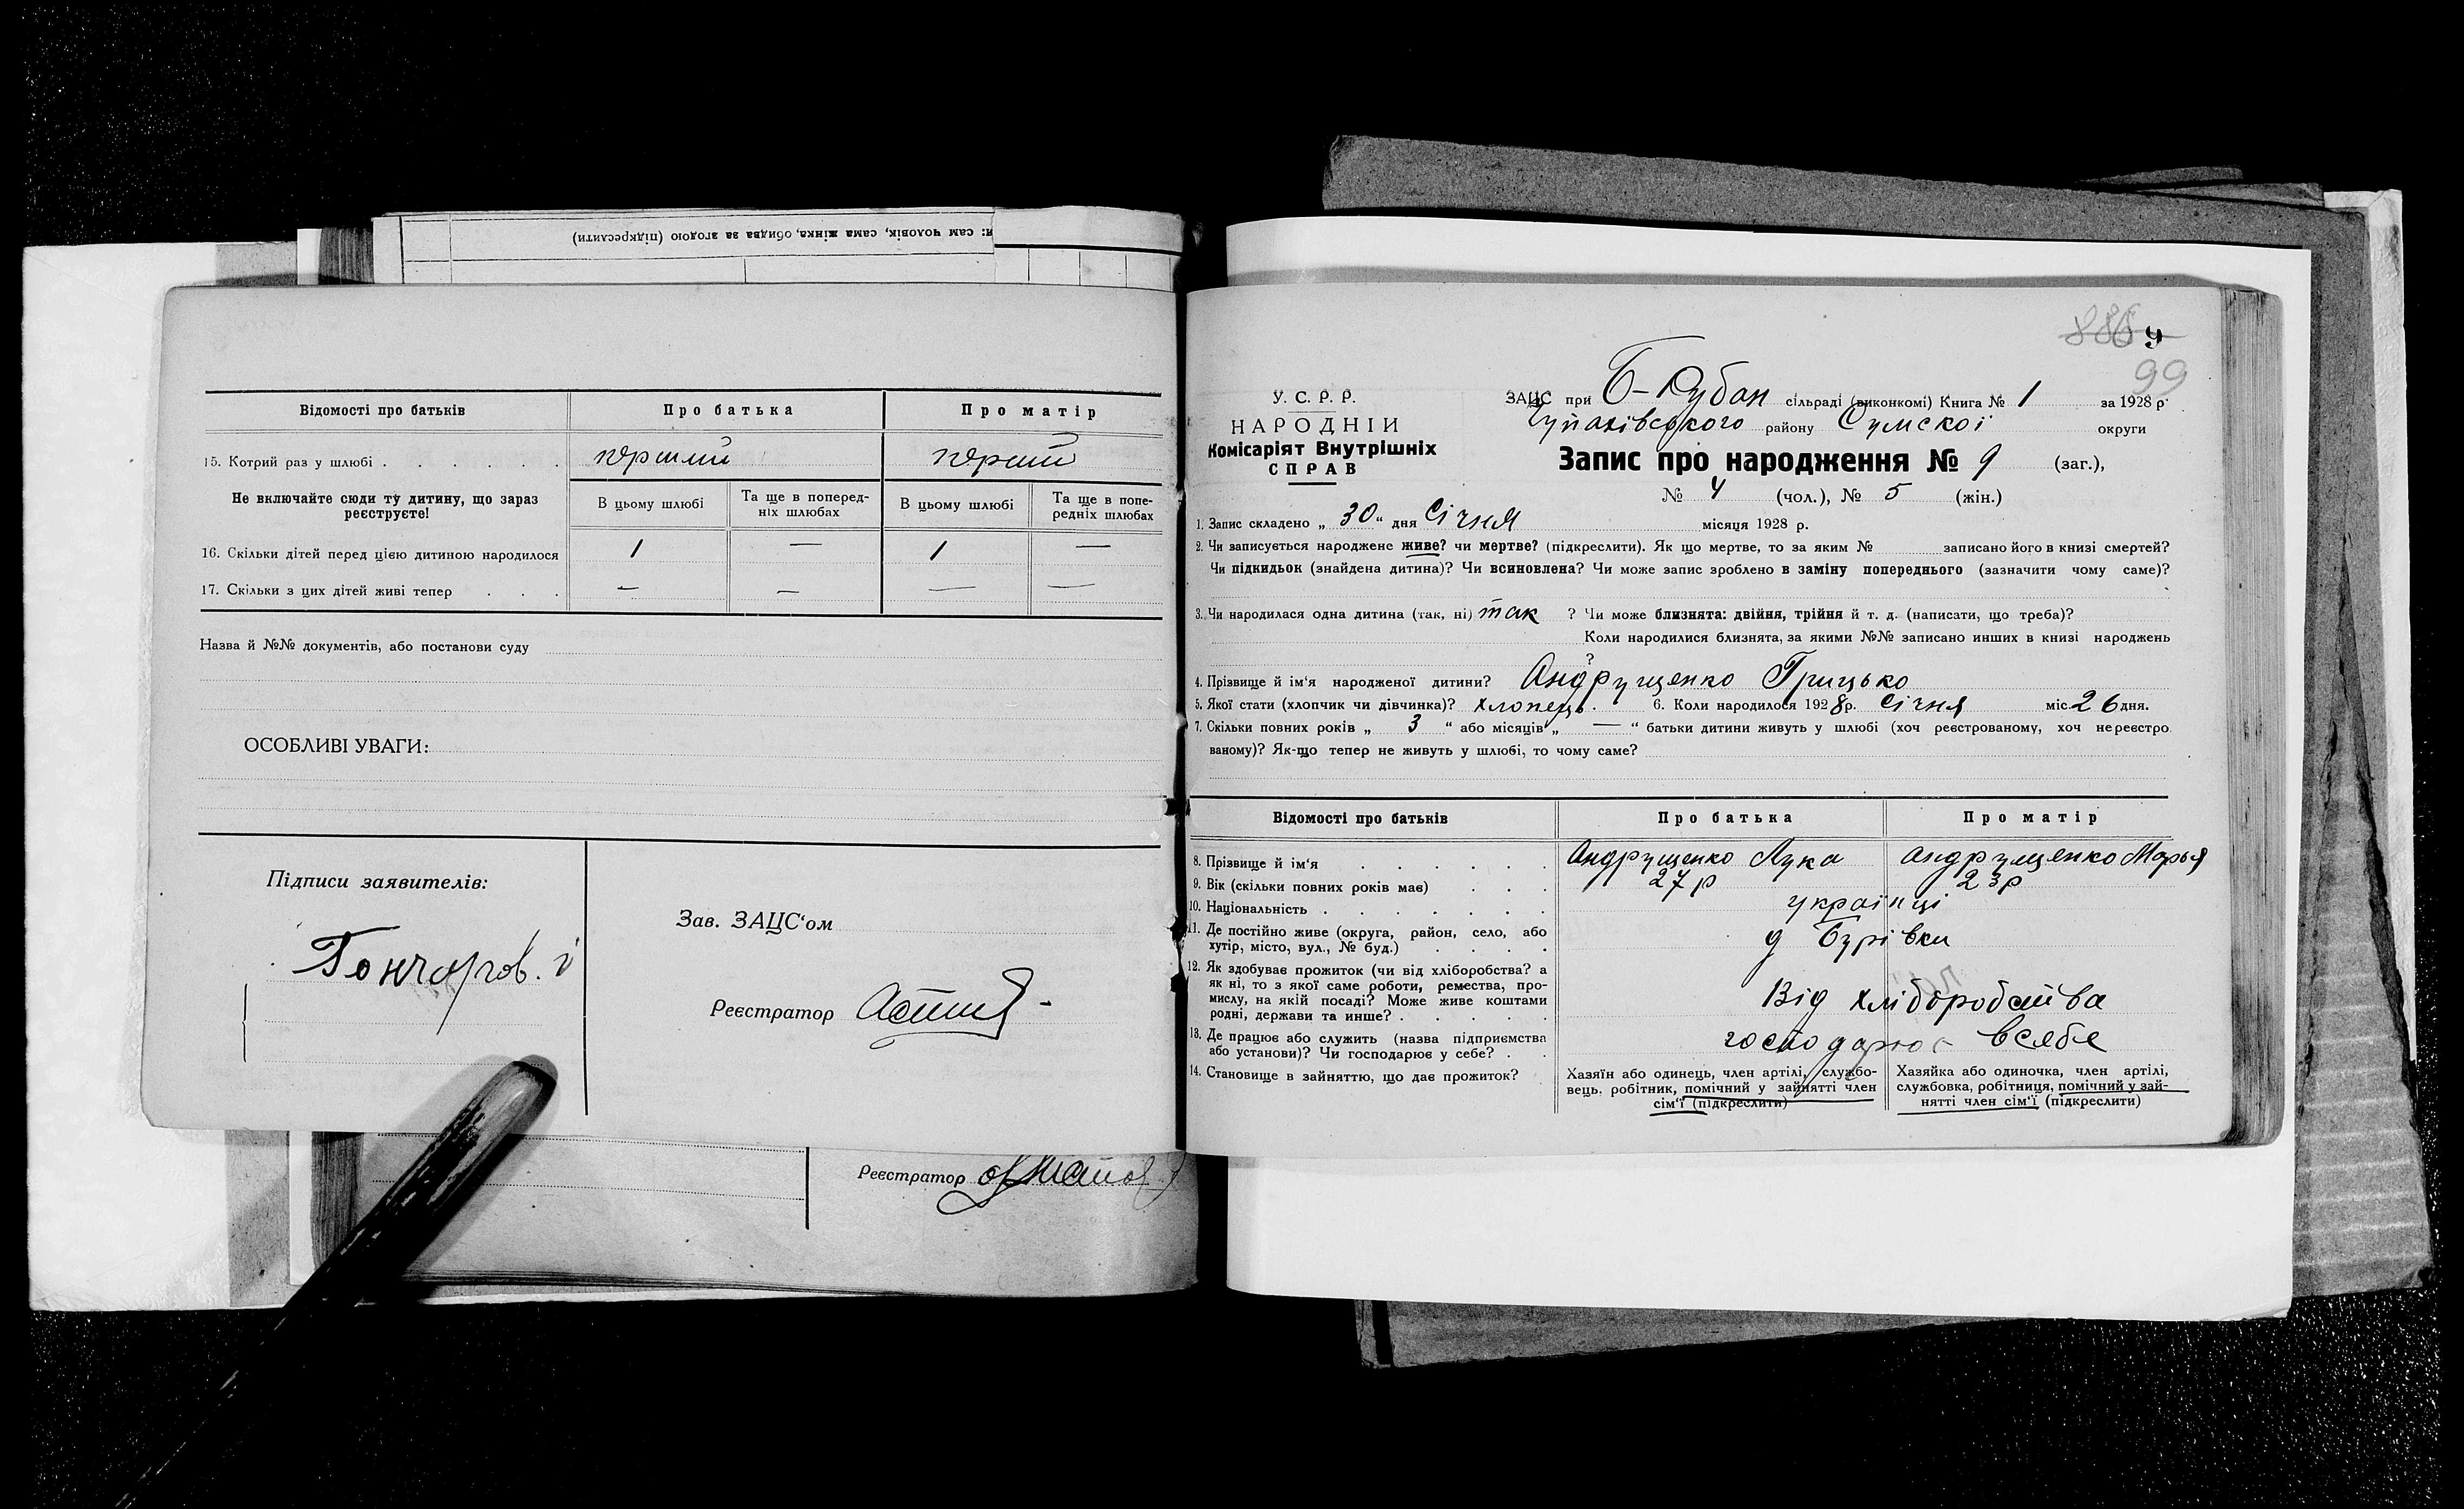 я: сам чоловік, сама жінка, обидва за згодою (підкреслити)
Відомості про батьків
Про батька
Про матір
15. Котрий раз у шлюбі
перший
перший
Не включайте сюди ту дитину, що зараз реєструєте!
В цьому шлюбі
Та ще в попередніх шлюбах
В цьому шлюбі
Та ще в попередніх шлюбах
16. Скільки дітей перед цією дитиною народилося 1 — 1 —
17. Скільки з цих дітей живі тепер — — — —
Назва й №№ документів, або постанови суду
ОСОБЛИВІ УВАГИ:
Підписи заявителів:
Зав. ЗАЦС'ом
Реєстратор
Реєстратор
886 9
99
У. С. Р. Р.
НАРОДНІЙ
Комісаріят Внутрішніх
СПРАВ
ЗАЦС при Б-Рубан сільраді (виконкомі) Книга № 1 за 1928 р.
району Сумскої округи
Запис про народження № 9 (заг.),
№ 4 (чол.), № 5 (жін.)
1. Запис складено „ 30 “ дня Січня місяця 1928 р.
2. Чи записується народжене живе? чи мертве? (підкреслити). Як що мертве, то за яким № записано його в книзі смертей?
Чи підкидьок (знайдена дитина)? Чи всиновлена? Чи може запис зроблено в заміну попереднього (зазначити чому саме)?
3. Чи народилася одна дитина (так, ні) так ? Чи може близнята: двійня, трійня й т. д. (написати, що треба)?
Коли народилися близнята, за якими №№ записано инших в книзі народжень
?
4. Прізвище й ім'я народженої дитини? Андрущенко Грицько
5. Якої стати (хлопчик чи дівчинка)? хлопець. 6. Коли народилося 1928 р. Січня міс. 26 дня.
7. Скільки повних років „ 3 “ або місяців „ — “ батьки дитини живуть у шлюбі (хоч реєстрованому, хоч нереєстро
ваному)? Як-що тепер не живуть у шлюбі, то чому саме?
Відомості про батьків
Про батька
Про матір
8. Прізвище й ім'я Андрущенко Лука Андрущенко Марья
9. Вік (скільки повних років має) 27 р 23 р
10. Національність українці
11. Де постійно живе (округа, район, село, або
хутір, місто, вул., № буд.) д Бурівки
12. Як здобуває прожиток (чи від хліборобства? а
як ні, то з якої саме роботи, ремества, про-
мислу, на якій посаді? Може живе коштами
родні, держави та инше? Від хліборобства
13. Де працює або служить (назва підприємства
або установи)? Чи господарює у себе? господарює всебе
14. Становище в зайняттю, що дає прожиток?
Хазяїн або одинець, член артілі, службо-
вець, робітник, помічний у зайнятті член
сім'ї (підкреслити)
Хазяйка або одиночка, член артілі,
службовка, робітниця, помічний у зай-
нятті член сім'ї (підкреслити)